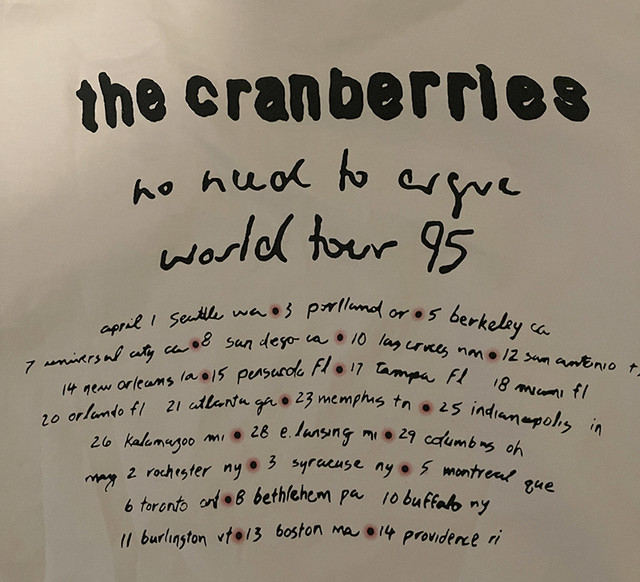 the cranberries
no need to argue
world tour 95
april 1 seattle wa • 3 portland or • 5 berkeley ca
7 universal city ca • 8 san diego ca • 10 las cruces nm • 12 san antonio t
14 new orleans la • 15 pensacola fl • 17 tampa fl 18 miami fl
20 orlando fl 21 atlanta ga • 23 memphis tn • 25 indianapolis in
26 kalamazoo mi • 28 e. lansing mi • 29 columbus oh
may 2 rochester ny • 3 syracuse ny • 5 montreal que
6 toronto ont • 8 bethlehem pa 10 buffalo ny
11 burlington vt • 13 boston ma • 14 providence ri